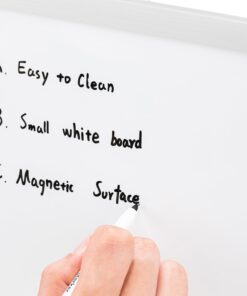 . Easy to Clean
. Small white board
. Magnetic Surface